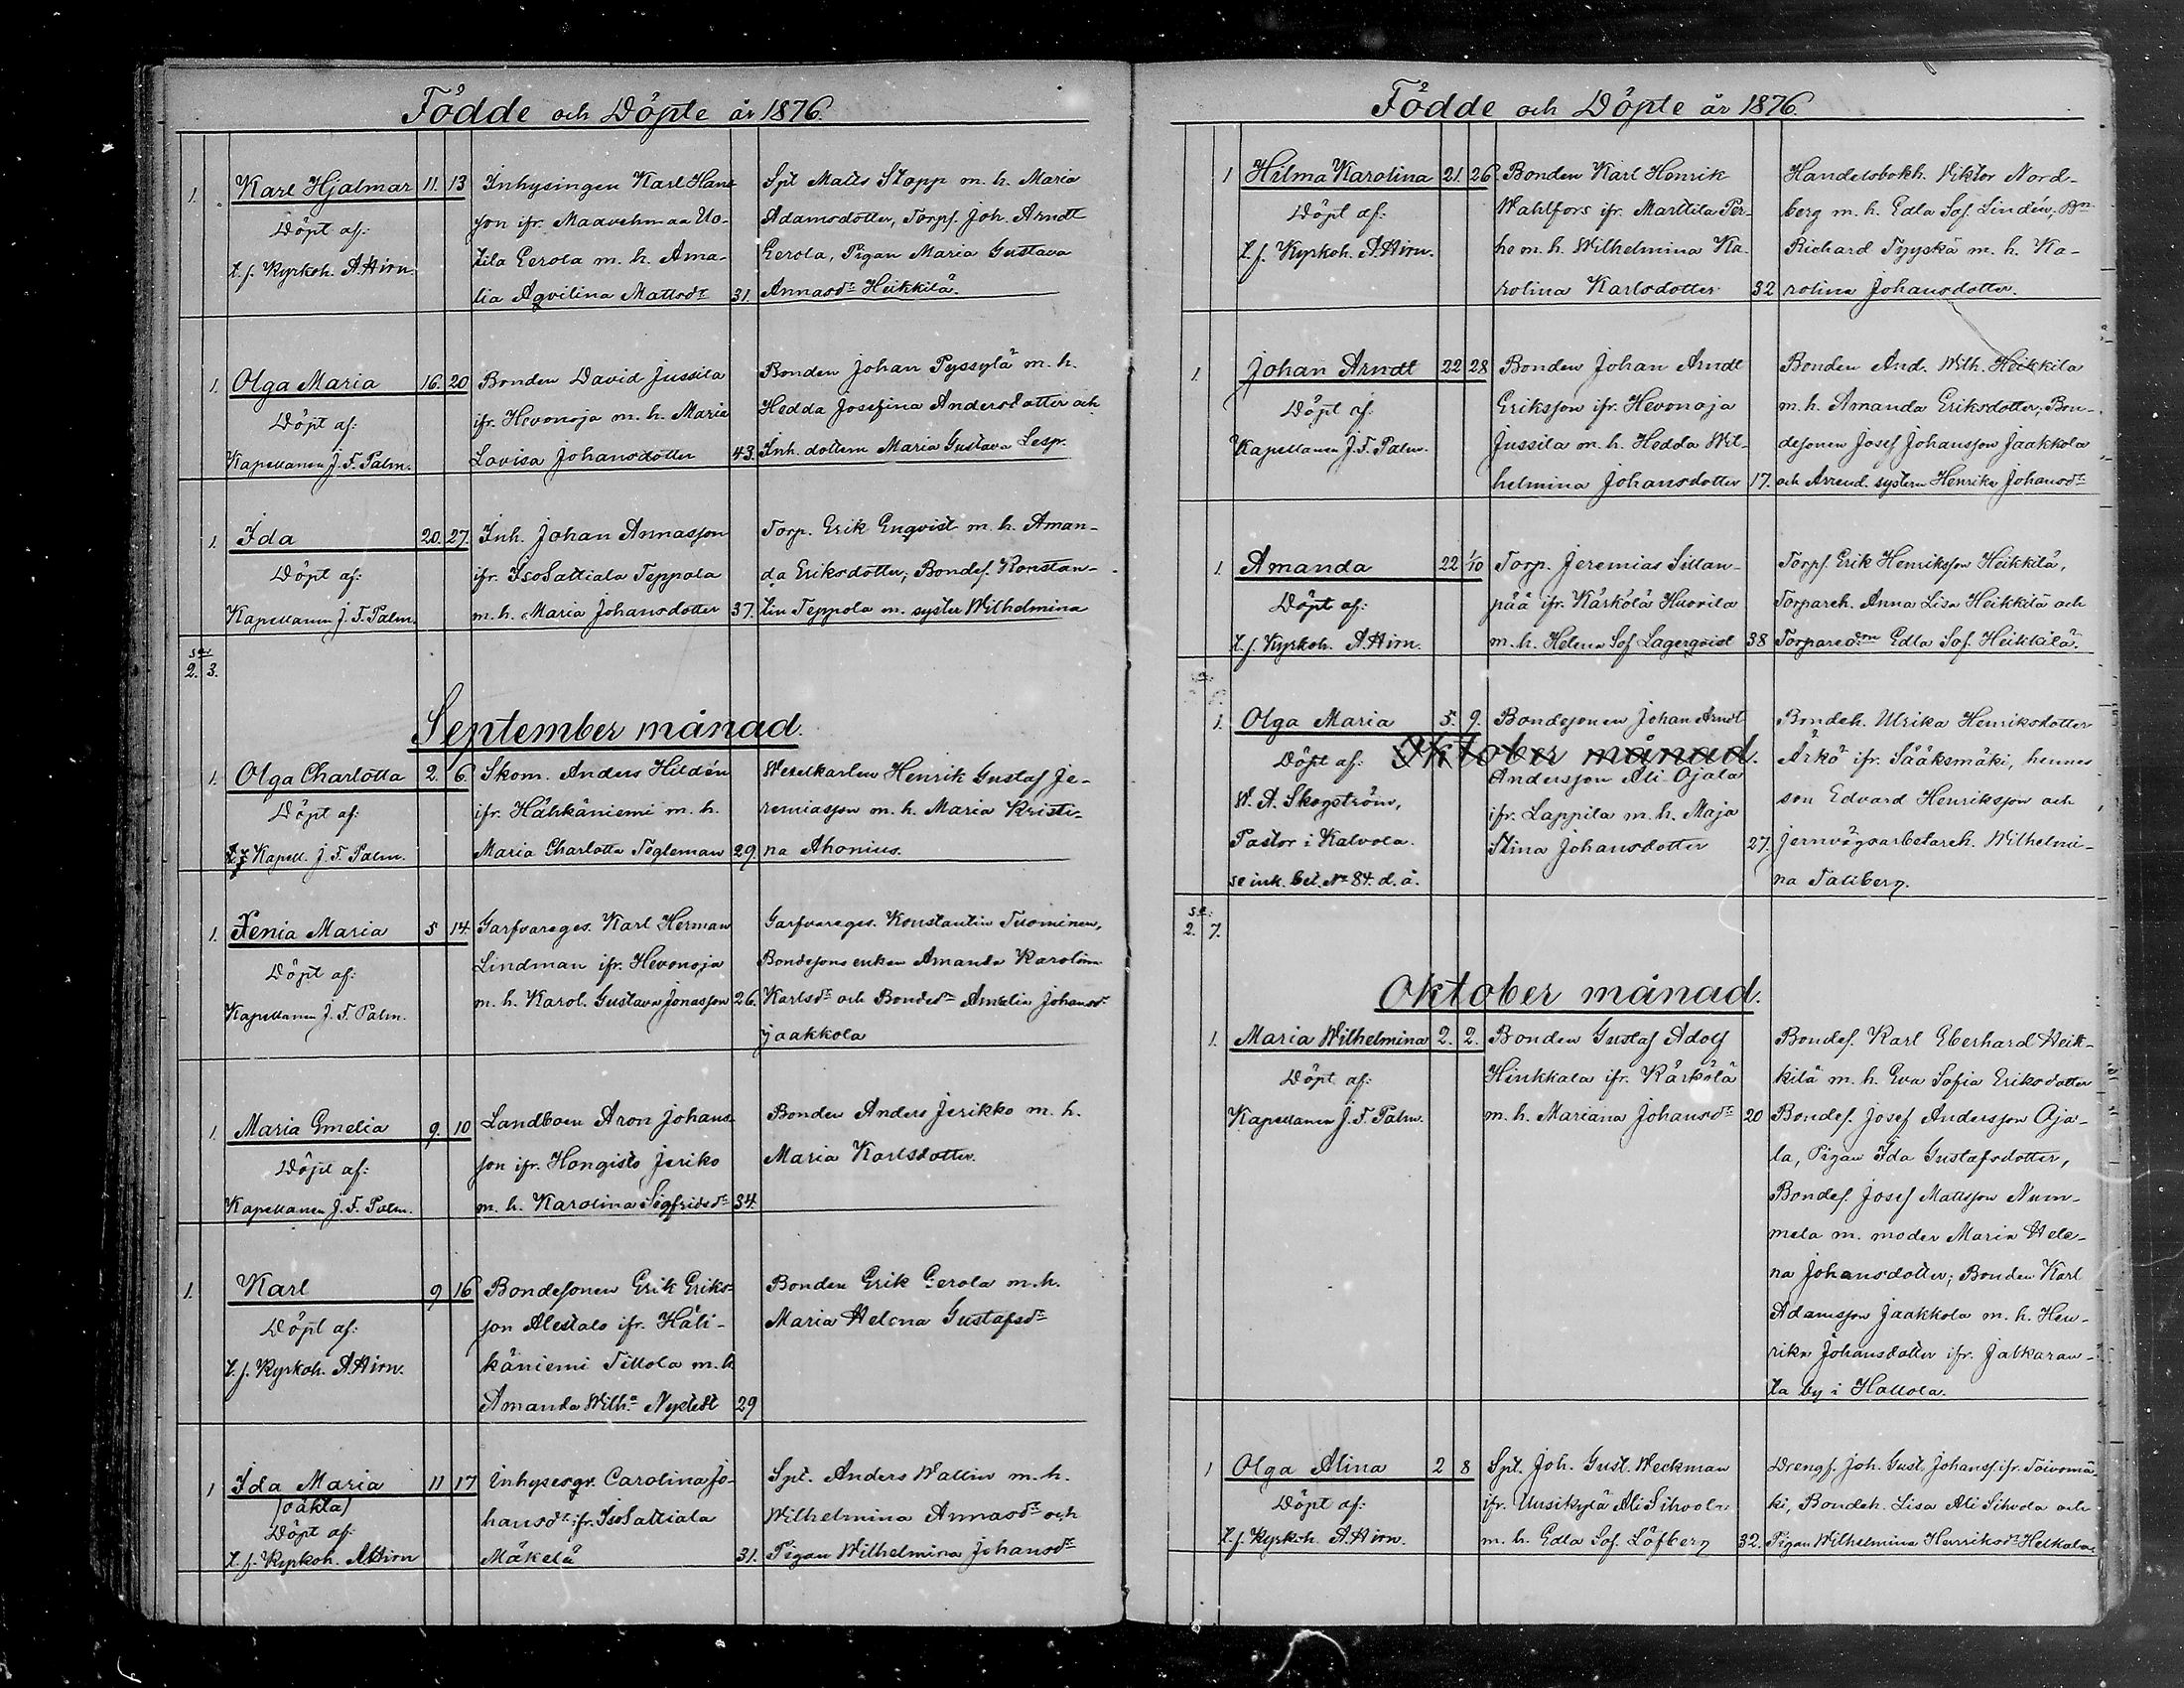 Födde och Döpte år 1876.
1. Karl Hjalmar 11. 13 Inhysingen Karl Hans- Spt Matts Stapp m. h. Maria
Döpt af: son ifr. Maavehmaa Uo- Adamsdotter, Torpf. Joh. Arndt
t. f. Kyrkoh. A. Hirn. tila Eerola m. h. Ama- Eerola, Pigan Maria Gustava
lia Aqvilina Mattsdr 31. Annasdr Heikkilä.
1. Olga Maria 16. 20 Bonden David Jussila Bonden Johan Pyssylä m. h.
Döpt af: ifr. Hevonoja m. h. Maria Hedda Josefina Andersdotter och
Kapellanen J. F. Palm. Lovisa Johansdotter 43. Inh. dottern Maria Gustava Lesp.
1. Ida 20. 27. Inh. Johan Annasson Torp. Erik Enqvist m. h. Aman-
Döpt af: ifr. IsoSattiala Teppola da Eriksdotter; Bondes. Konstan-
Kapellanen J. F. Palm. m. h. Maria Johansdotter 37. tin Teppola m. syster Wilhelmina
2. 3.
September månad.
1. Olga Charlotta 2. 6. Skom. Anders Hildén Wexelkarlen Henrik Gustaf Je-
Döpt af: ifr. Hähkäniemi m. h. remiasson m. h. Maria Kristi-
Kapell. J. F. Palm. Maria Charlotta Tegleman 29. na Ahonius.
1. Xenia Maria 5 14. Garfvareges. Karl Herman Garfvareges. Konstantin Tuominen,
Döpt af: Lindman ifr. Hevonoja Bondesons enkan Amanda Karolina
Kapellanen J. F. Palm. m. h. Karol. Gustava Jonasson 26. Karlsdr och Bondedr Amalia Johansdr
Jaakkola
1. Maria Emelia 9. 10 Landboen Aron Johans- Bonden Anders Jerikko m. h.
Döpt af: son ifr. Hongisto Jeriko Maria Karlsdotter.
Kapellanen J. F. Palm. m. h. Karolina Sigfridsdr 34.
1. Karl 9 16 Bondesonen Erik Eriks- Bonden Erik Eerola m. h.
Döpt af: son Alestalo ifr. Häh- Maria Helena Gustafsdr
t. f. Kyrkoh. A. Hirn. käniemi Tillola m. h.
Amanda Wilh:a Nystedt 29
1 Ida Maria 11 17 Inhysesqv. Carolina Jo- Spt. Anders Wallin m. h.
(oäkta)
Döpt af: hansdr ifr. IsoSattiala Wilhelmina Annasdr och
t. f. Kyrkoh. A. Hirn Mäkelä 31. Pigan Wilhelmina Johansdr
Födde och Döpte år 1876.
1 Hilma Karolina 21. 26. Bonden Karl Henrik Handelsbokh. Viktor Nord-
Döpt af: Wahlfors ifr. Marttila Per- berg m. h. Edla Sof. Lindén; Bn
t. f. Kyrkoh. A. Hirn. he m. h. Wilhelmina Ka- Richard Tyyskä m. h. Ka-
rolina Karlsdotter 32 rolina Johansdotter.
1. Johan Arndt 22 28 Bonden Johan Arndt Bonden And. Wilh. Heikkilä
Döpt af: Eriksson ifr. Hevonoja m. h. Amanda Eriksdotter; Bon-
Kapellanen J. F. Palm. Jussila m. h. Hedda Wil- desonen Josef Johansson Jaakkola
helmina Johansdotter 17. och Arrend. systern Henrika Johansdr
1. Amanda 22 1/10 Torp. Jeremias Sillan- Torpf. Erik Henriksson Heikkilä,
Döpt af: pää ifr. Kärkölä Huovila Torpareh. Anna Lisa Heikkilä och
t. f. Kyrkoh. A. Hirn. m. h. Helena Sof. Lagerqvist 38 Torpared:rn Edla Sof. Heikkilä.
1. Olga Maria 5. 9. Bondesonen Johan Arndt Bondeh. Ulrika Henriksdotter
Oktober månad.
Döpt af: Andersson Ali-Ojala Ärkö ifr. Sääksmäki, hennes
W. A. Skogström, ifr. Lappila m. h. Maja son Edvard Henriksson och
Pastor i Kalvola. Stina Johansdotter 27. jernvägsarbetareh. Wilhelmi-
se ink. bet. No 84. d. å. na Tallberg.
2. 7.
Oktober månad.
1. Maria Wilhelmina 2. 2. Bonden Gustaf Adolf Bondes. Karl Eberhard Heik-
Döpt af: Hinkkala ifr. Kärkölä kilä m. h. Eva Sofia Eriksdotter
Kapellanen J. F. Palm. m. h. Mariana Johansdr 20 Bondes. Josef Andersson Oja-
la, Pigan Ida Gustafsdotter,
Bondes. Josef Mattsson Num-
mela m. moder Maria Hele-
na Johansdotter; Bonden Karl
Adamsson Jaakkola m. h. Hen-
rika Johansdotter ifr. Jalkaran-
ta by i Hollola.
1 Olga Alina 2 8 Spt. Joh. Gust. Weckman Drengf. Joh. Gust. Johanss. ifr. Toivomä-
Döpt af: ifr. Uusikylä Ali Sihvola ki, Bondeh. Lisa Ali Sihvola och
t. f. Kyrkoh. A. Hirn. m. h. Edla Sof. Löfberg 32. Pigan Wilhelmina Henriksdr Helkala.